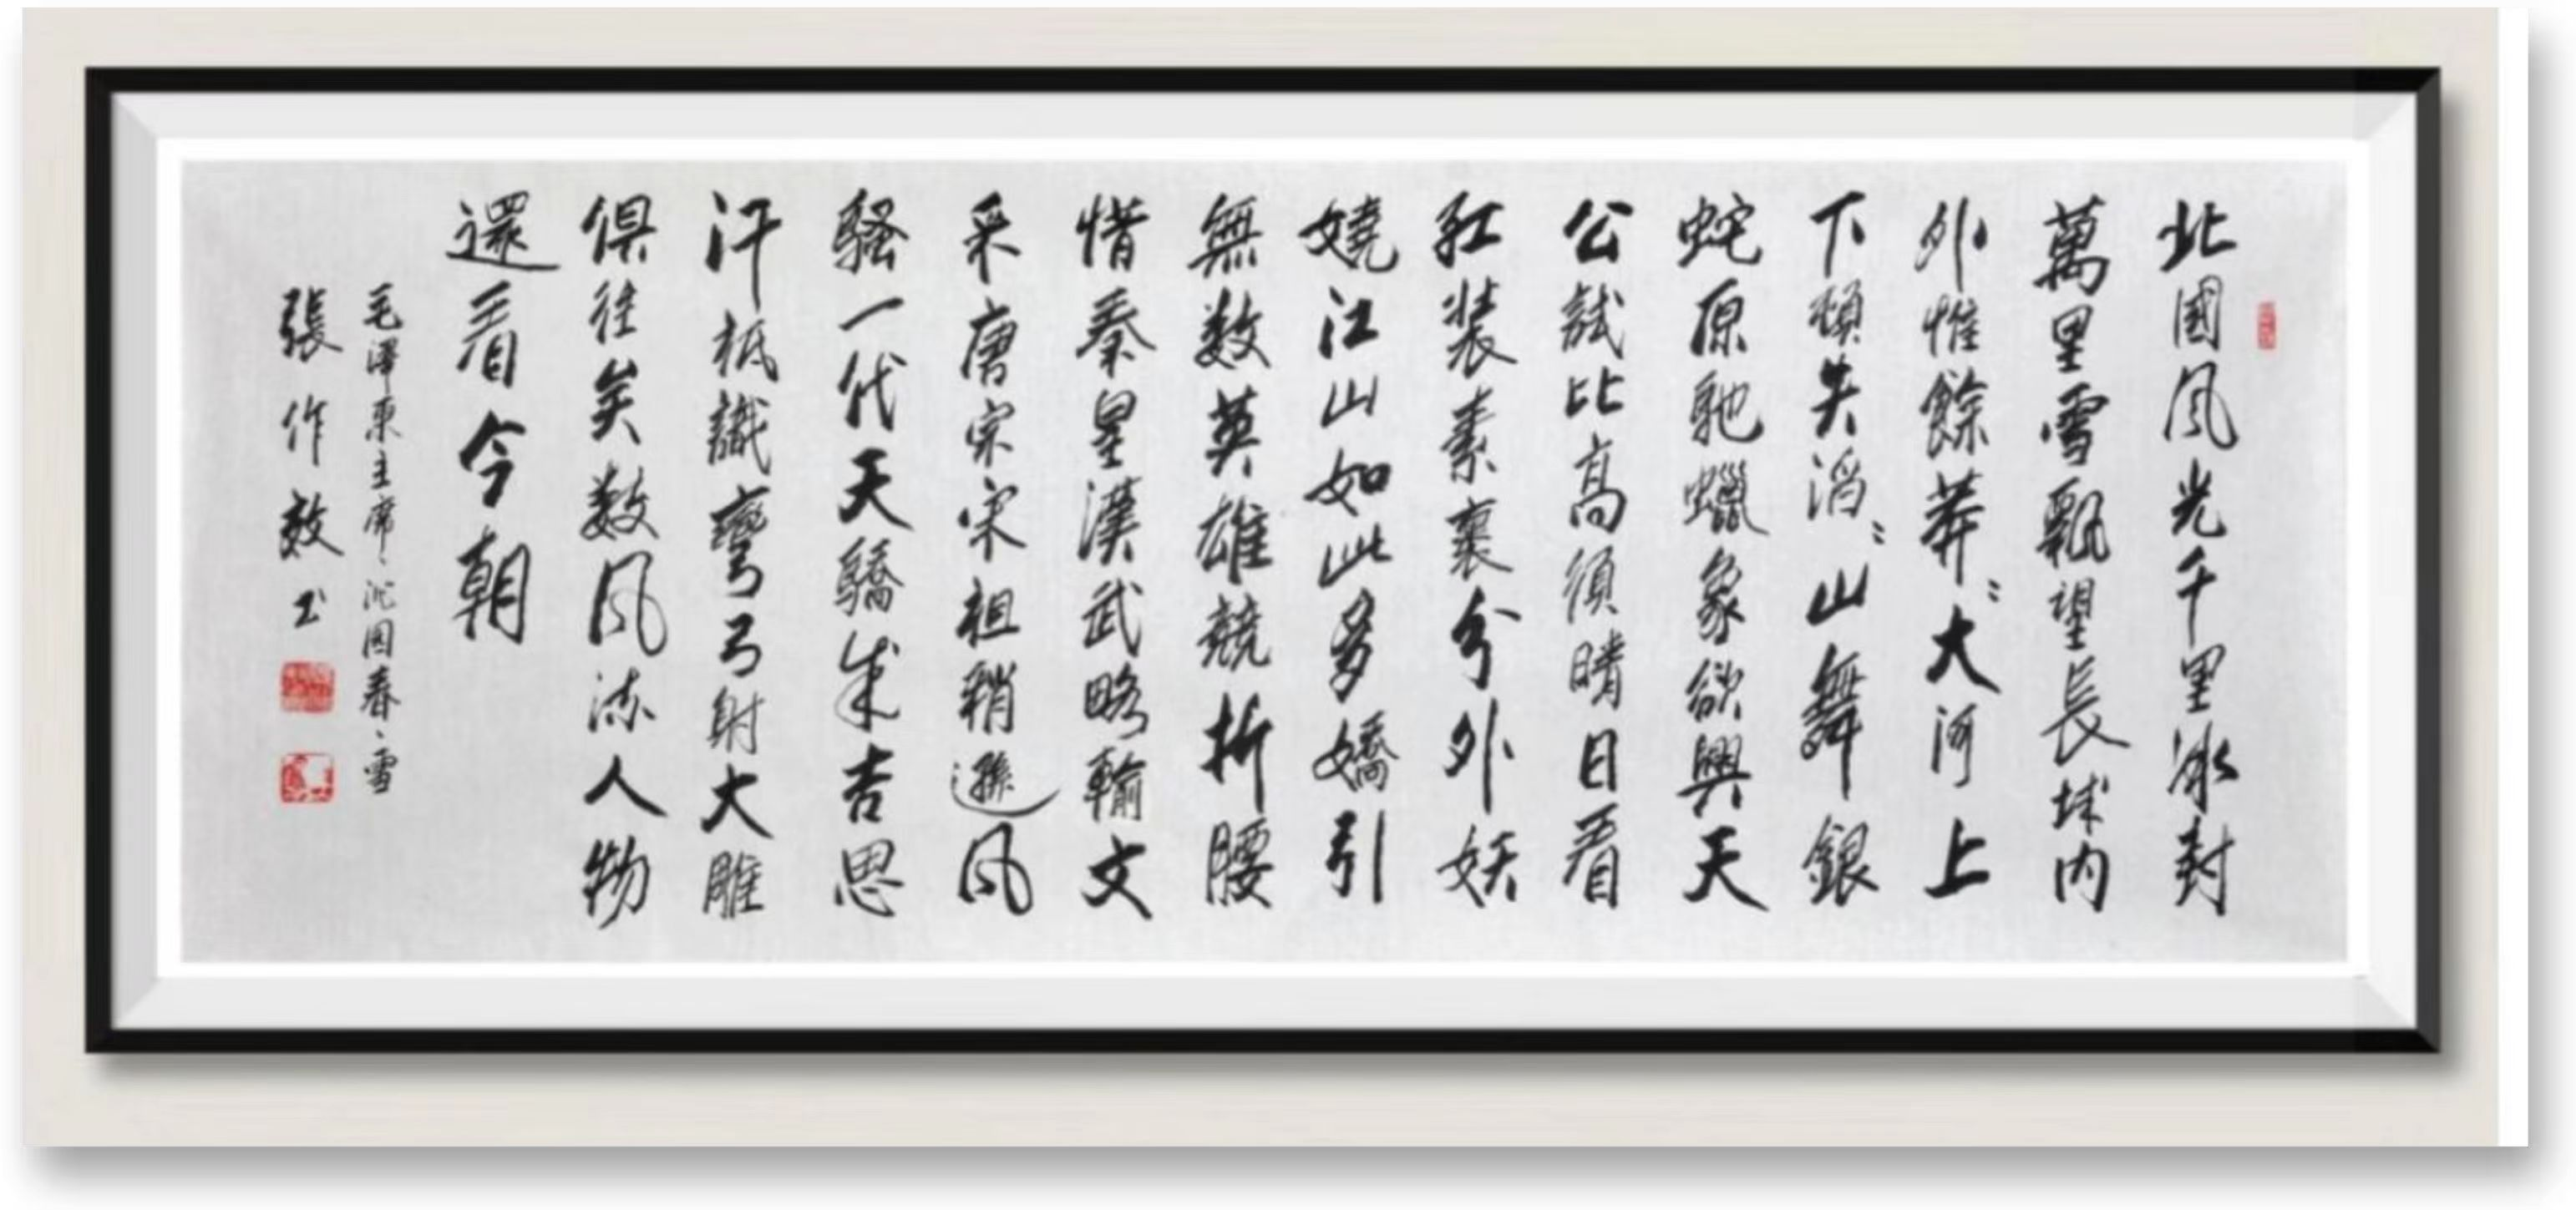 北國風光千里冰封
萬里雪飄望長城内
外惟餘莽〻大河上
下頓失滔〻山舞銀
蛇原馳蠟象欲與天
公試比高須晴日看
紅裝素裹分外妖
嬈江山如此多嬌引
無数英雄競折腰
惜秦皇漢武略輸文
采唐宗宋祖稍遜風
騷一代天驕成吉思
汗衹識彎弓射大雕
俱往矣数風流人物
還看今朝
毛澤東主席、沁園春、雪
張作效书